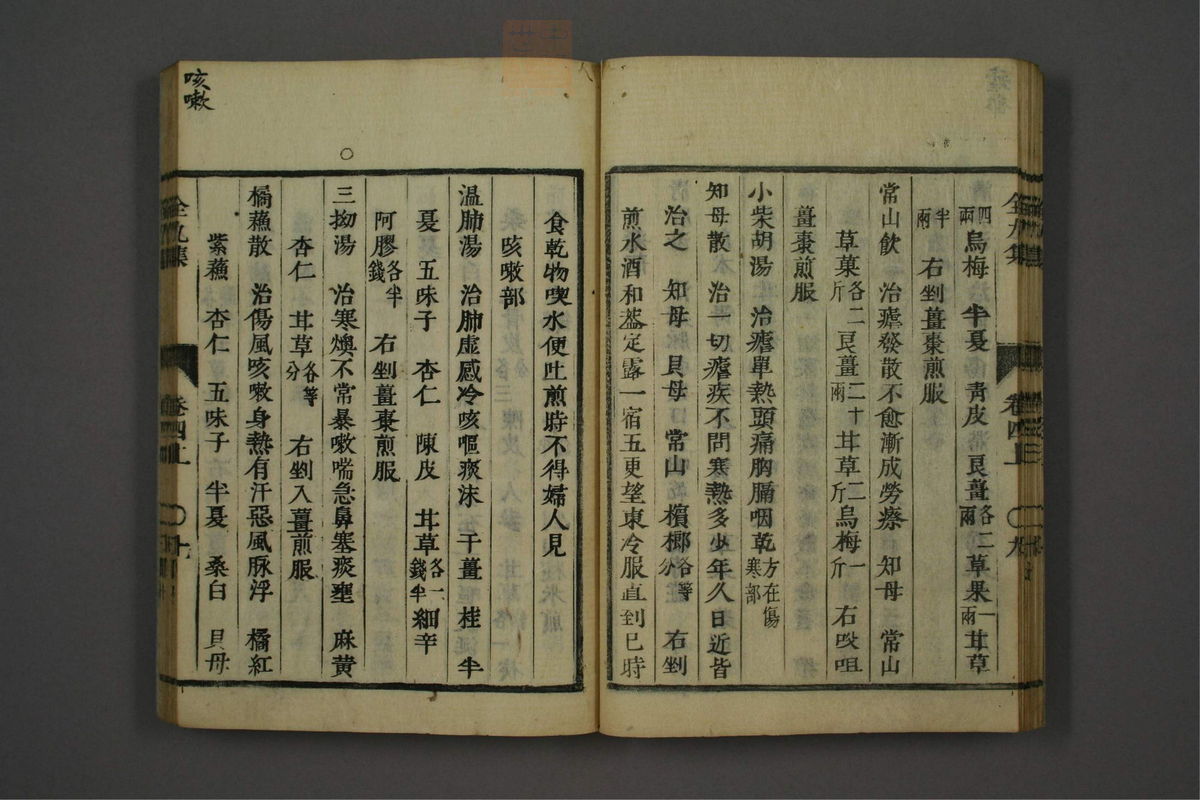 四兩烏梅 半夏 靑皮 良薑各二兩草果一兩甘草
半兩 右剉薑棗煎服
常山飮 治瘧發散不愈漸成勞瘵 知母 常山
草菓各二斤良薑二十兩甘草二斤烏梅一斤 右㕮咀
薑棗煎服
小柴胡湯 治瘧單熱頭痛胸膈咽乾方在傷寒部
知母散 治一切瘧疾不問寒熱多少年久日近皆
治之 知母 貝母 常山 檳榔各等分 右剉
煎水酒和蓋定露一宿五更望東冷服直到巳時
食乾物喫水便吐煎時不得婦人見
咳嗽部
溫肺湯 治肺虛感冷咳嘔痰沫 干薑 桂 半
夏 五味子 杏仁 陳皮 甘草各一錢半細辛
阿膠各半錢 右剉薑棗煎服
三拗湯 治寒燠不常暴嗽喘急鼻塞痰壅 麻黃
杏仁 甘草各等分 右剉入薑煎服
橘蘓散 治傷風咳嗽身熱有汗惡風脉浮 橘紅
紫蘓 杏仁 五味子 半夏 桑白 貝母
全九集
卷四上
九
全九集
卷四上
十
咳嗽